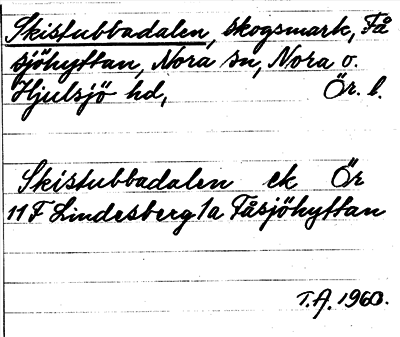 Skistubbadalen, skogsmark, Få
sjöhyttan, Nora sn, Nora o.
Hjulsjö hd, Ör. l.
Skistubbadalen ek Ör
11 F Lindesberg 1a Fåsjöhyttan
T.A. 1960.